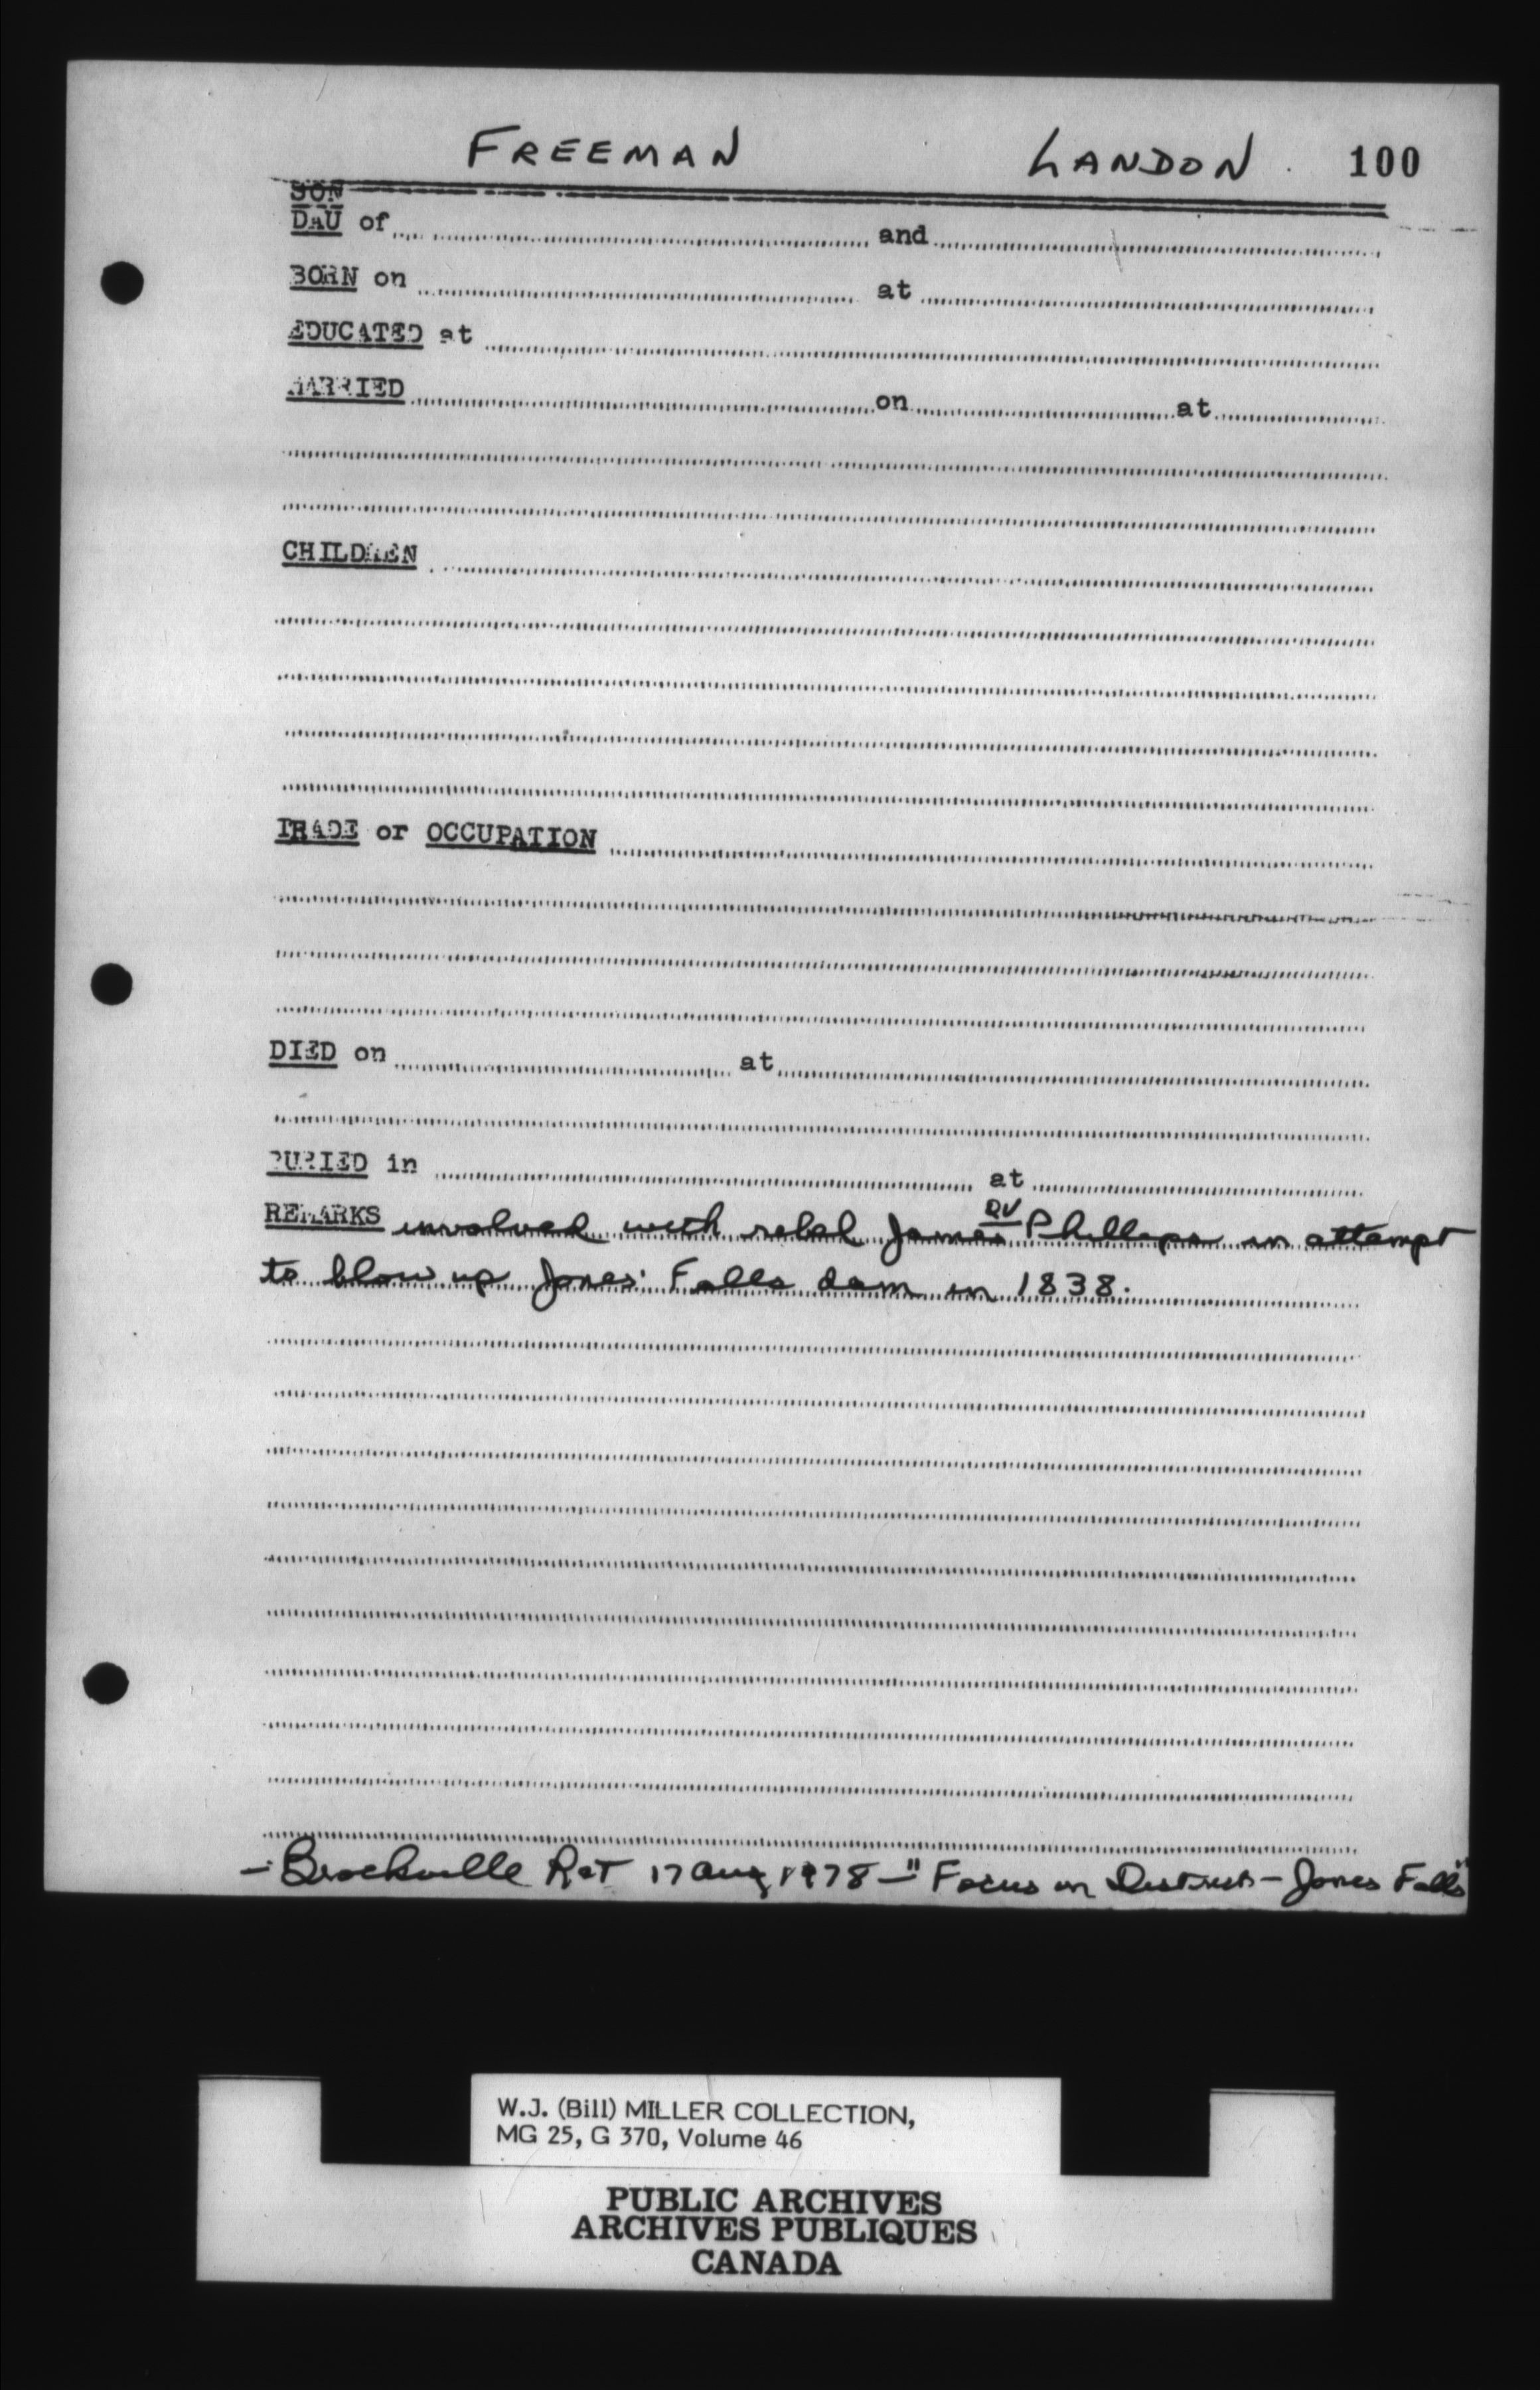 FREEMAN LANDON 100
SON
DAU of and
BORN on at
EDUCATED at
MARRIED on at
CHILDREN
TRADE or OCCUPATION
DIED on at
BURIED in at
QV
REMARKS involved with rebel James Phillips in attempt
to blow up Jones' Falls dam in 1838.
- Brockville R&T 17 Aug 1978 - "Focus on Districts - Jones Falls"
W.J. (Bill) MILLER COLLECTION,
MG 25, G 370, Volume 46
PUBLIC ARCHIVES
ARCHIVES PUBLIQUES
CANADA